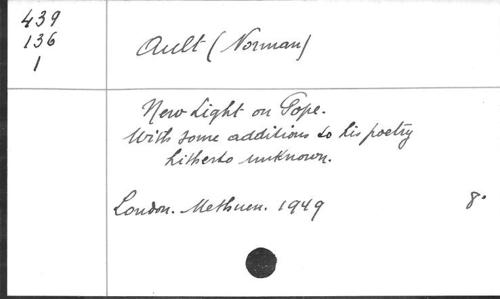 439
136
1
Ault (Norman)
New Light on Pope.
With some additions to his poetry
hitherto unknown.
London. Methuen. 1949 8º